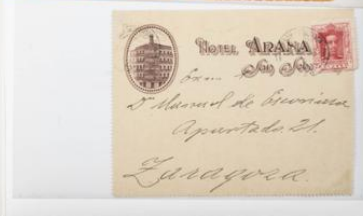 HOTEL ARANA
San Se
Exmo
Dn Manuel de Escoriaza
Apartado 21.
Zaragoza.